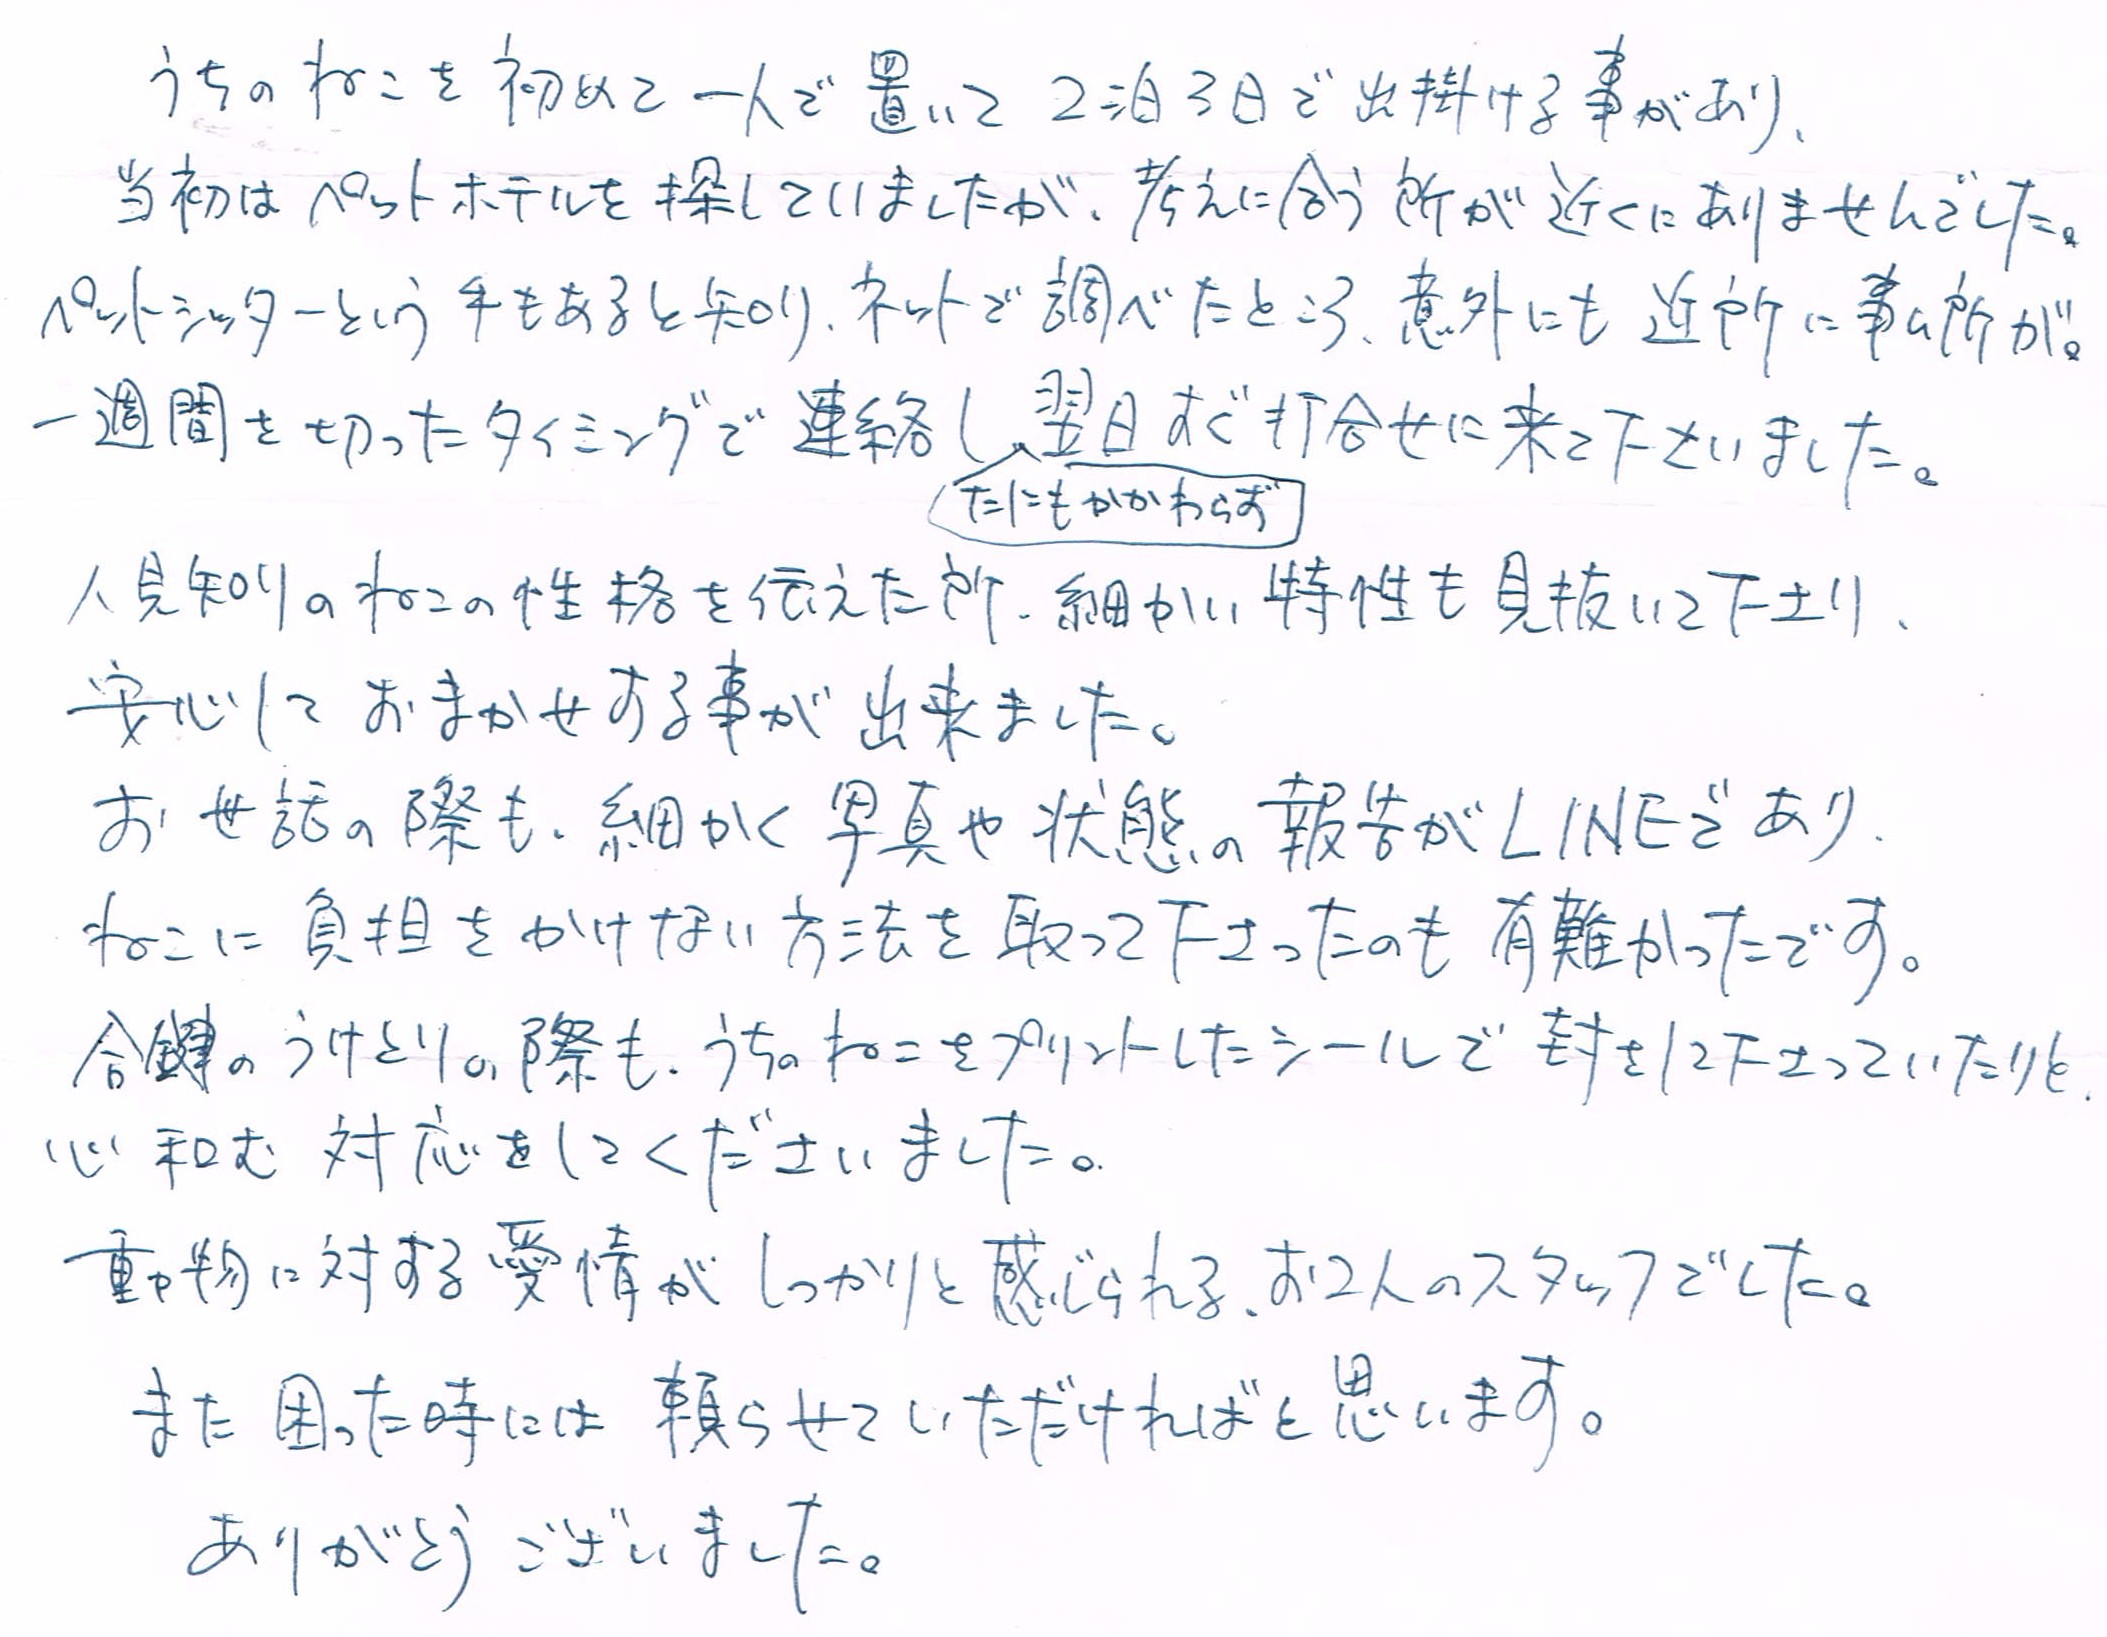 うちのねこを初めて一人で置いて2泊3日で出掛ける事があり、
当初はペットホテルを探していましたが、考えに合う所が近くにありませんでした。
ペットシッターという手もあると知り、ネットで調べたところ、意外にも近所に事ム所が。
一週間を切ったタイミングで連絡し、翌日すぐ打合せに来て下さいました。
たにもかかわらず
人見知りのねこの性格を伝えた所、細かい特性も見抜いて下さり、
安心しておまかせする事が出来ました。
お世話の際も、細かく写真や状態の報告がLINEであり、
ねこに負担をかけない方法を取って下さったのも有難かったです。
合鍵のうけとりの際も、うちのねこをプリントしたシールで封をして下さっていたりと、
心和む対応をしてくださいました。
動物に対する愛情がしっかりと感じられる、お2人のスタッフでした。
また困った時には頼らせていただければと思います。
ありがとうございました。